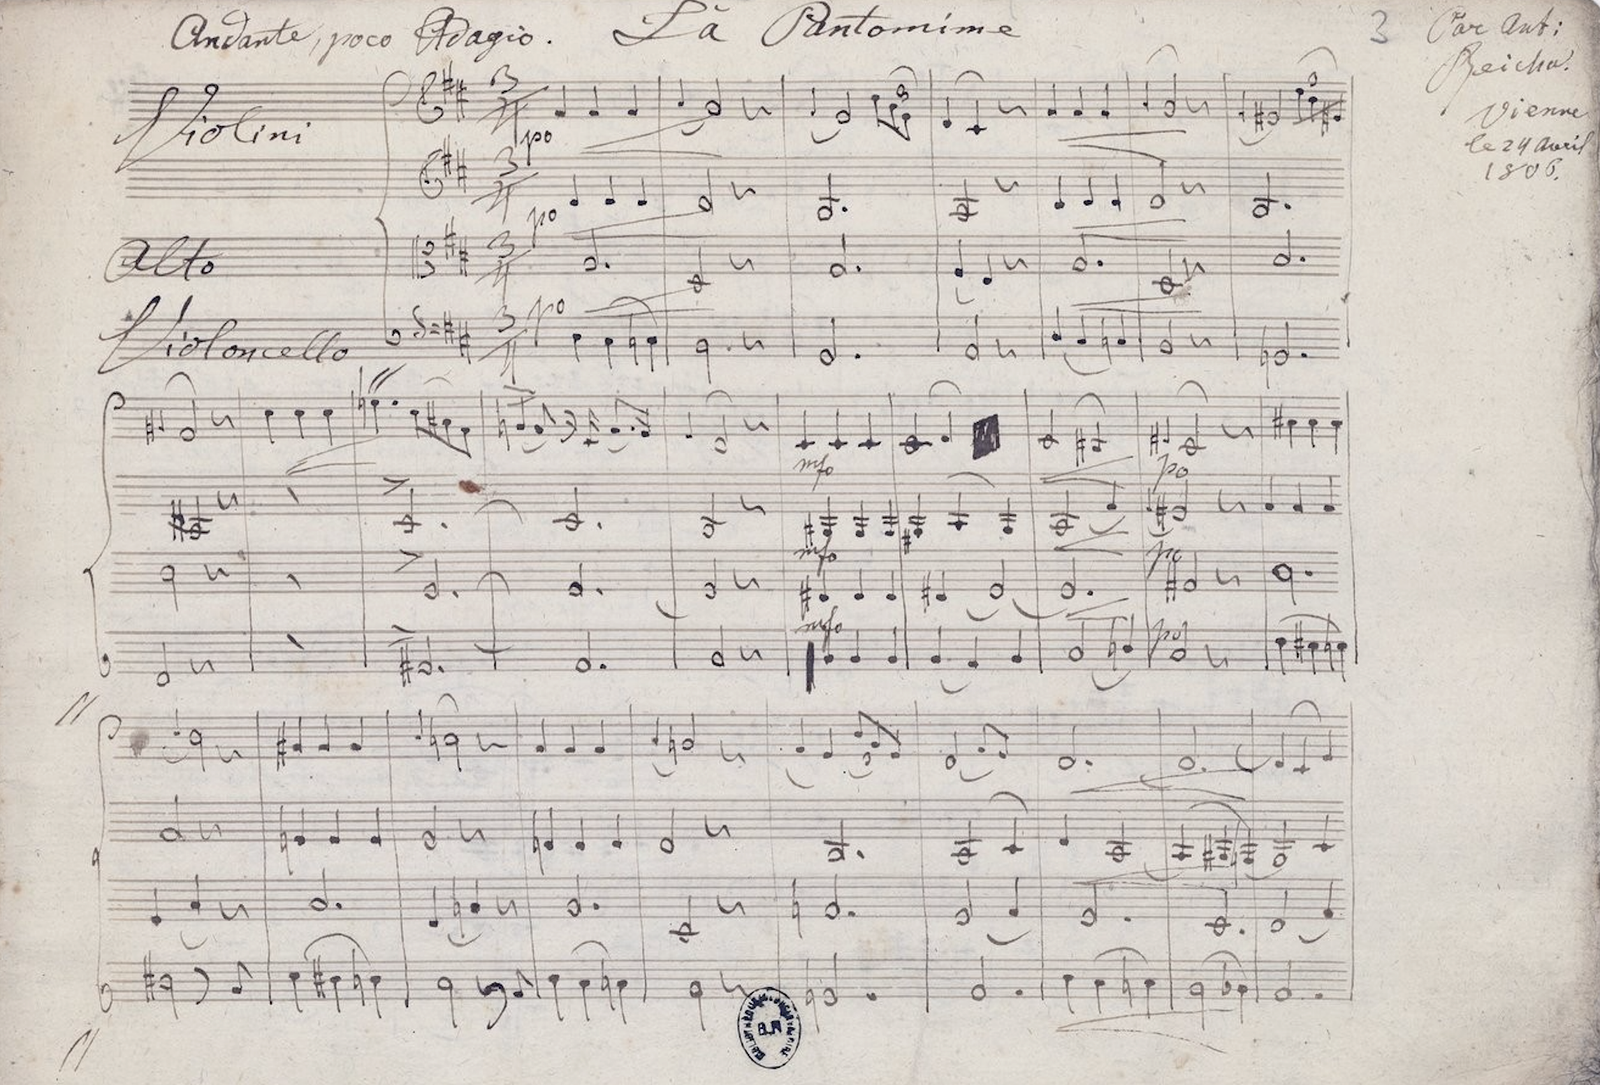 Andante, poco Adagio. La Pantomime 3 Par Ant:
Reicha.
Vienne
le 24 Avril
1806.
Violini
po
po
Alto
po
Violoncello
mfo po
mfo po
mfo po
B.N